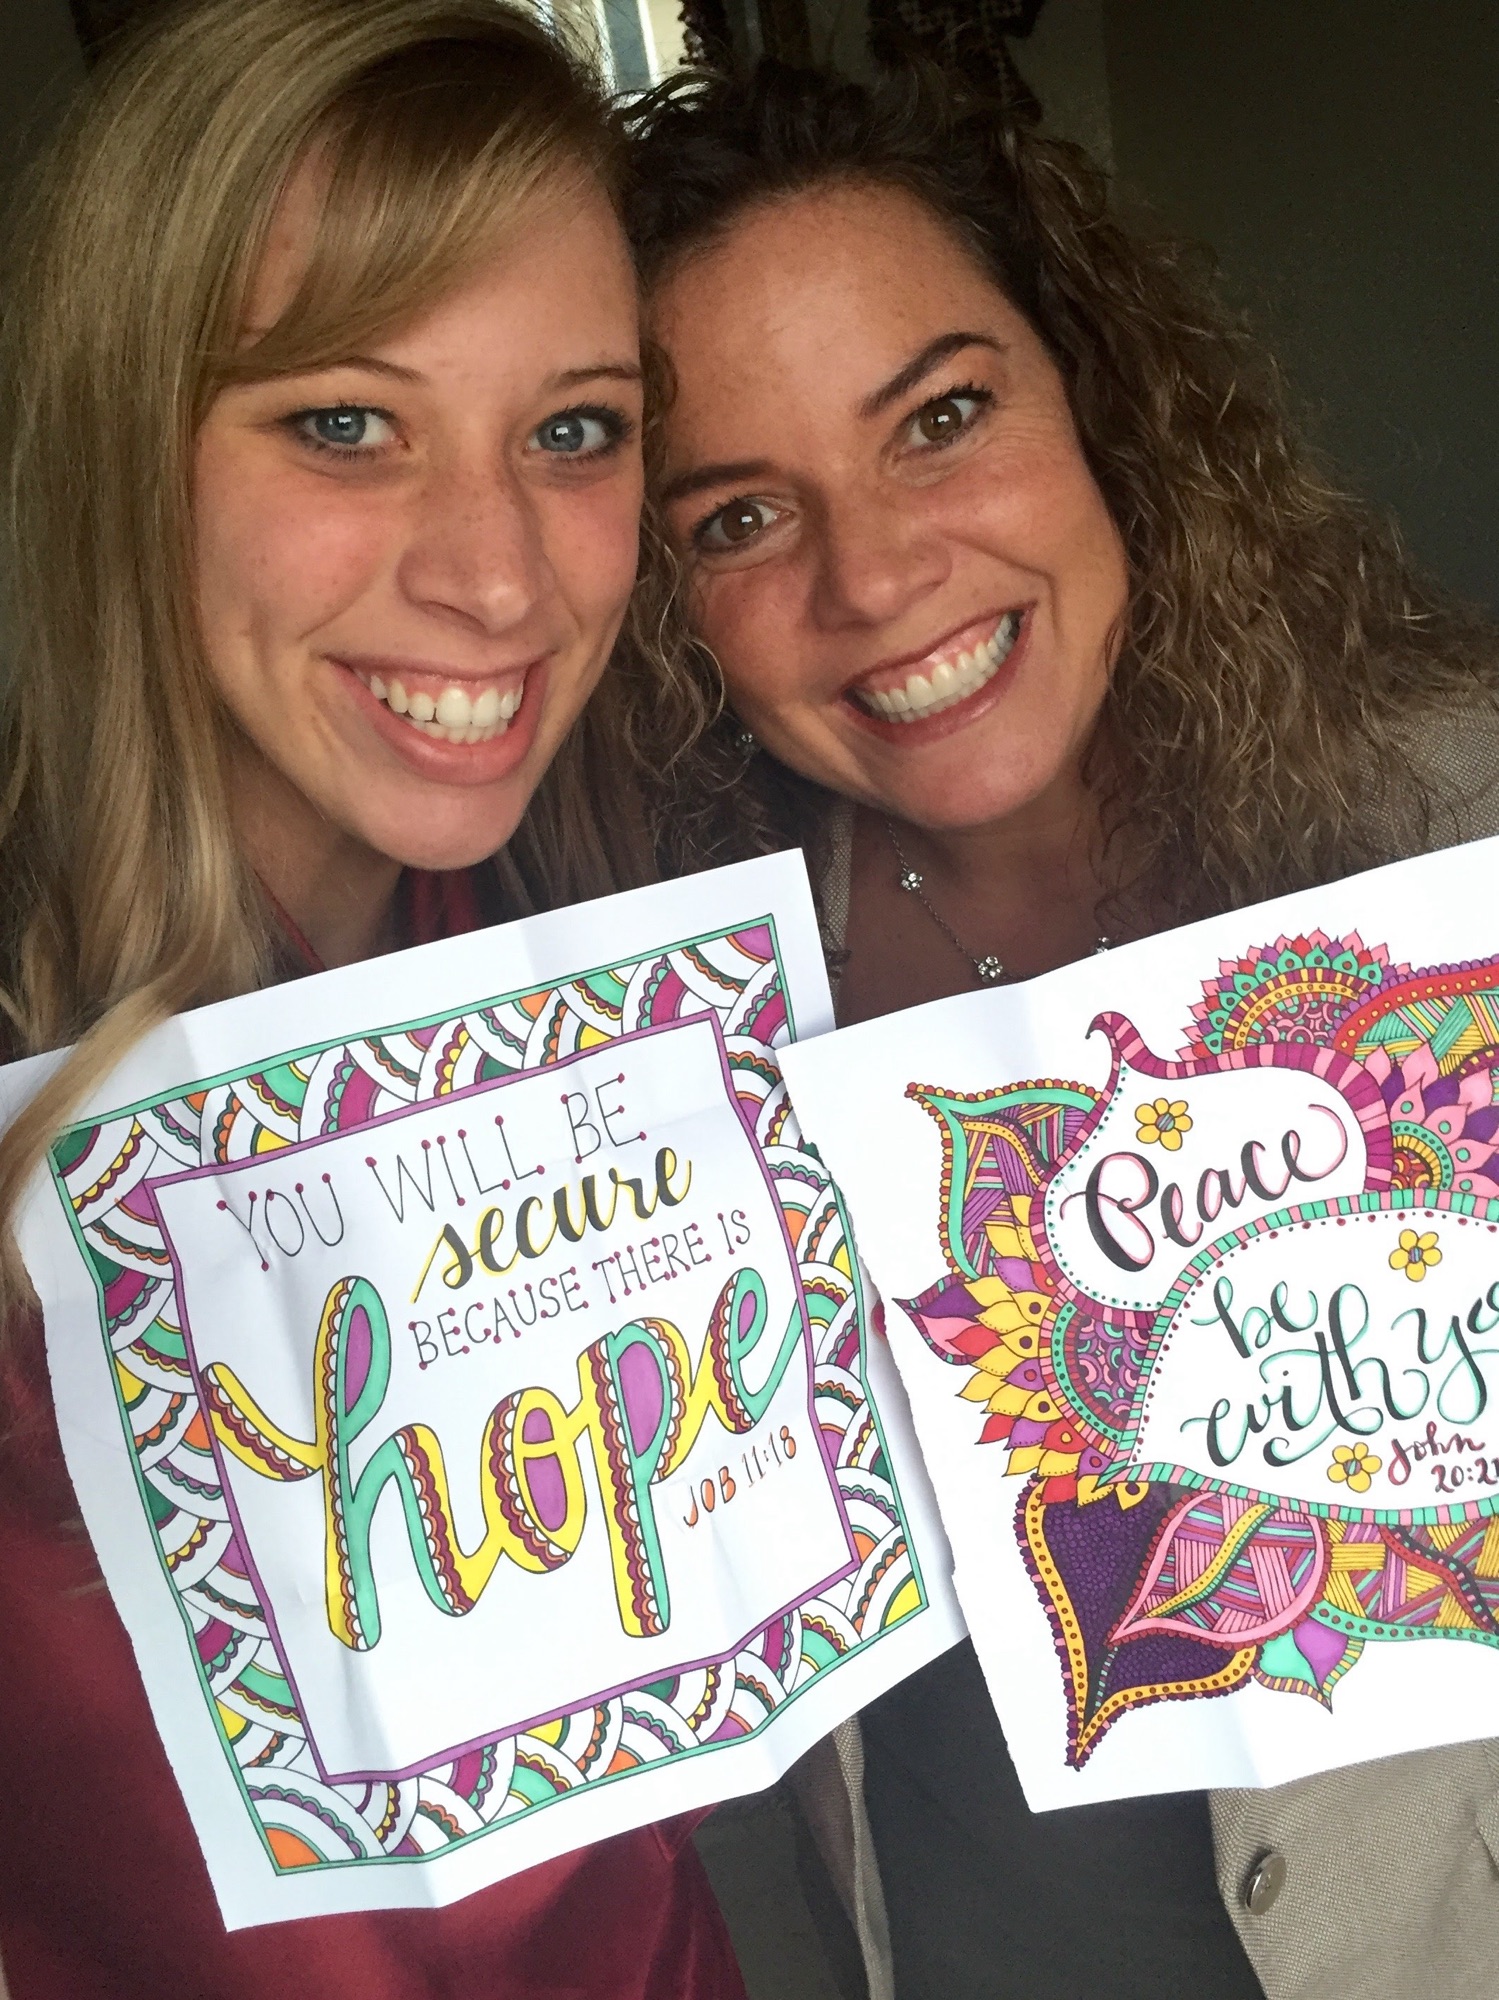 YOU WILL BE
secure
BECAUSE THERE IS
hope
JOB 11:18
Peace
be
with
John
20:21